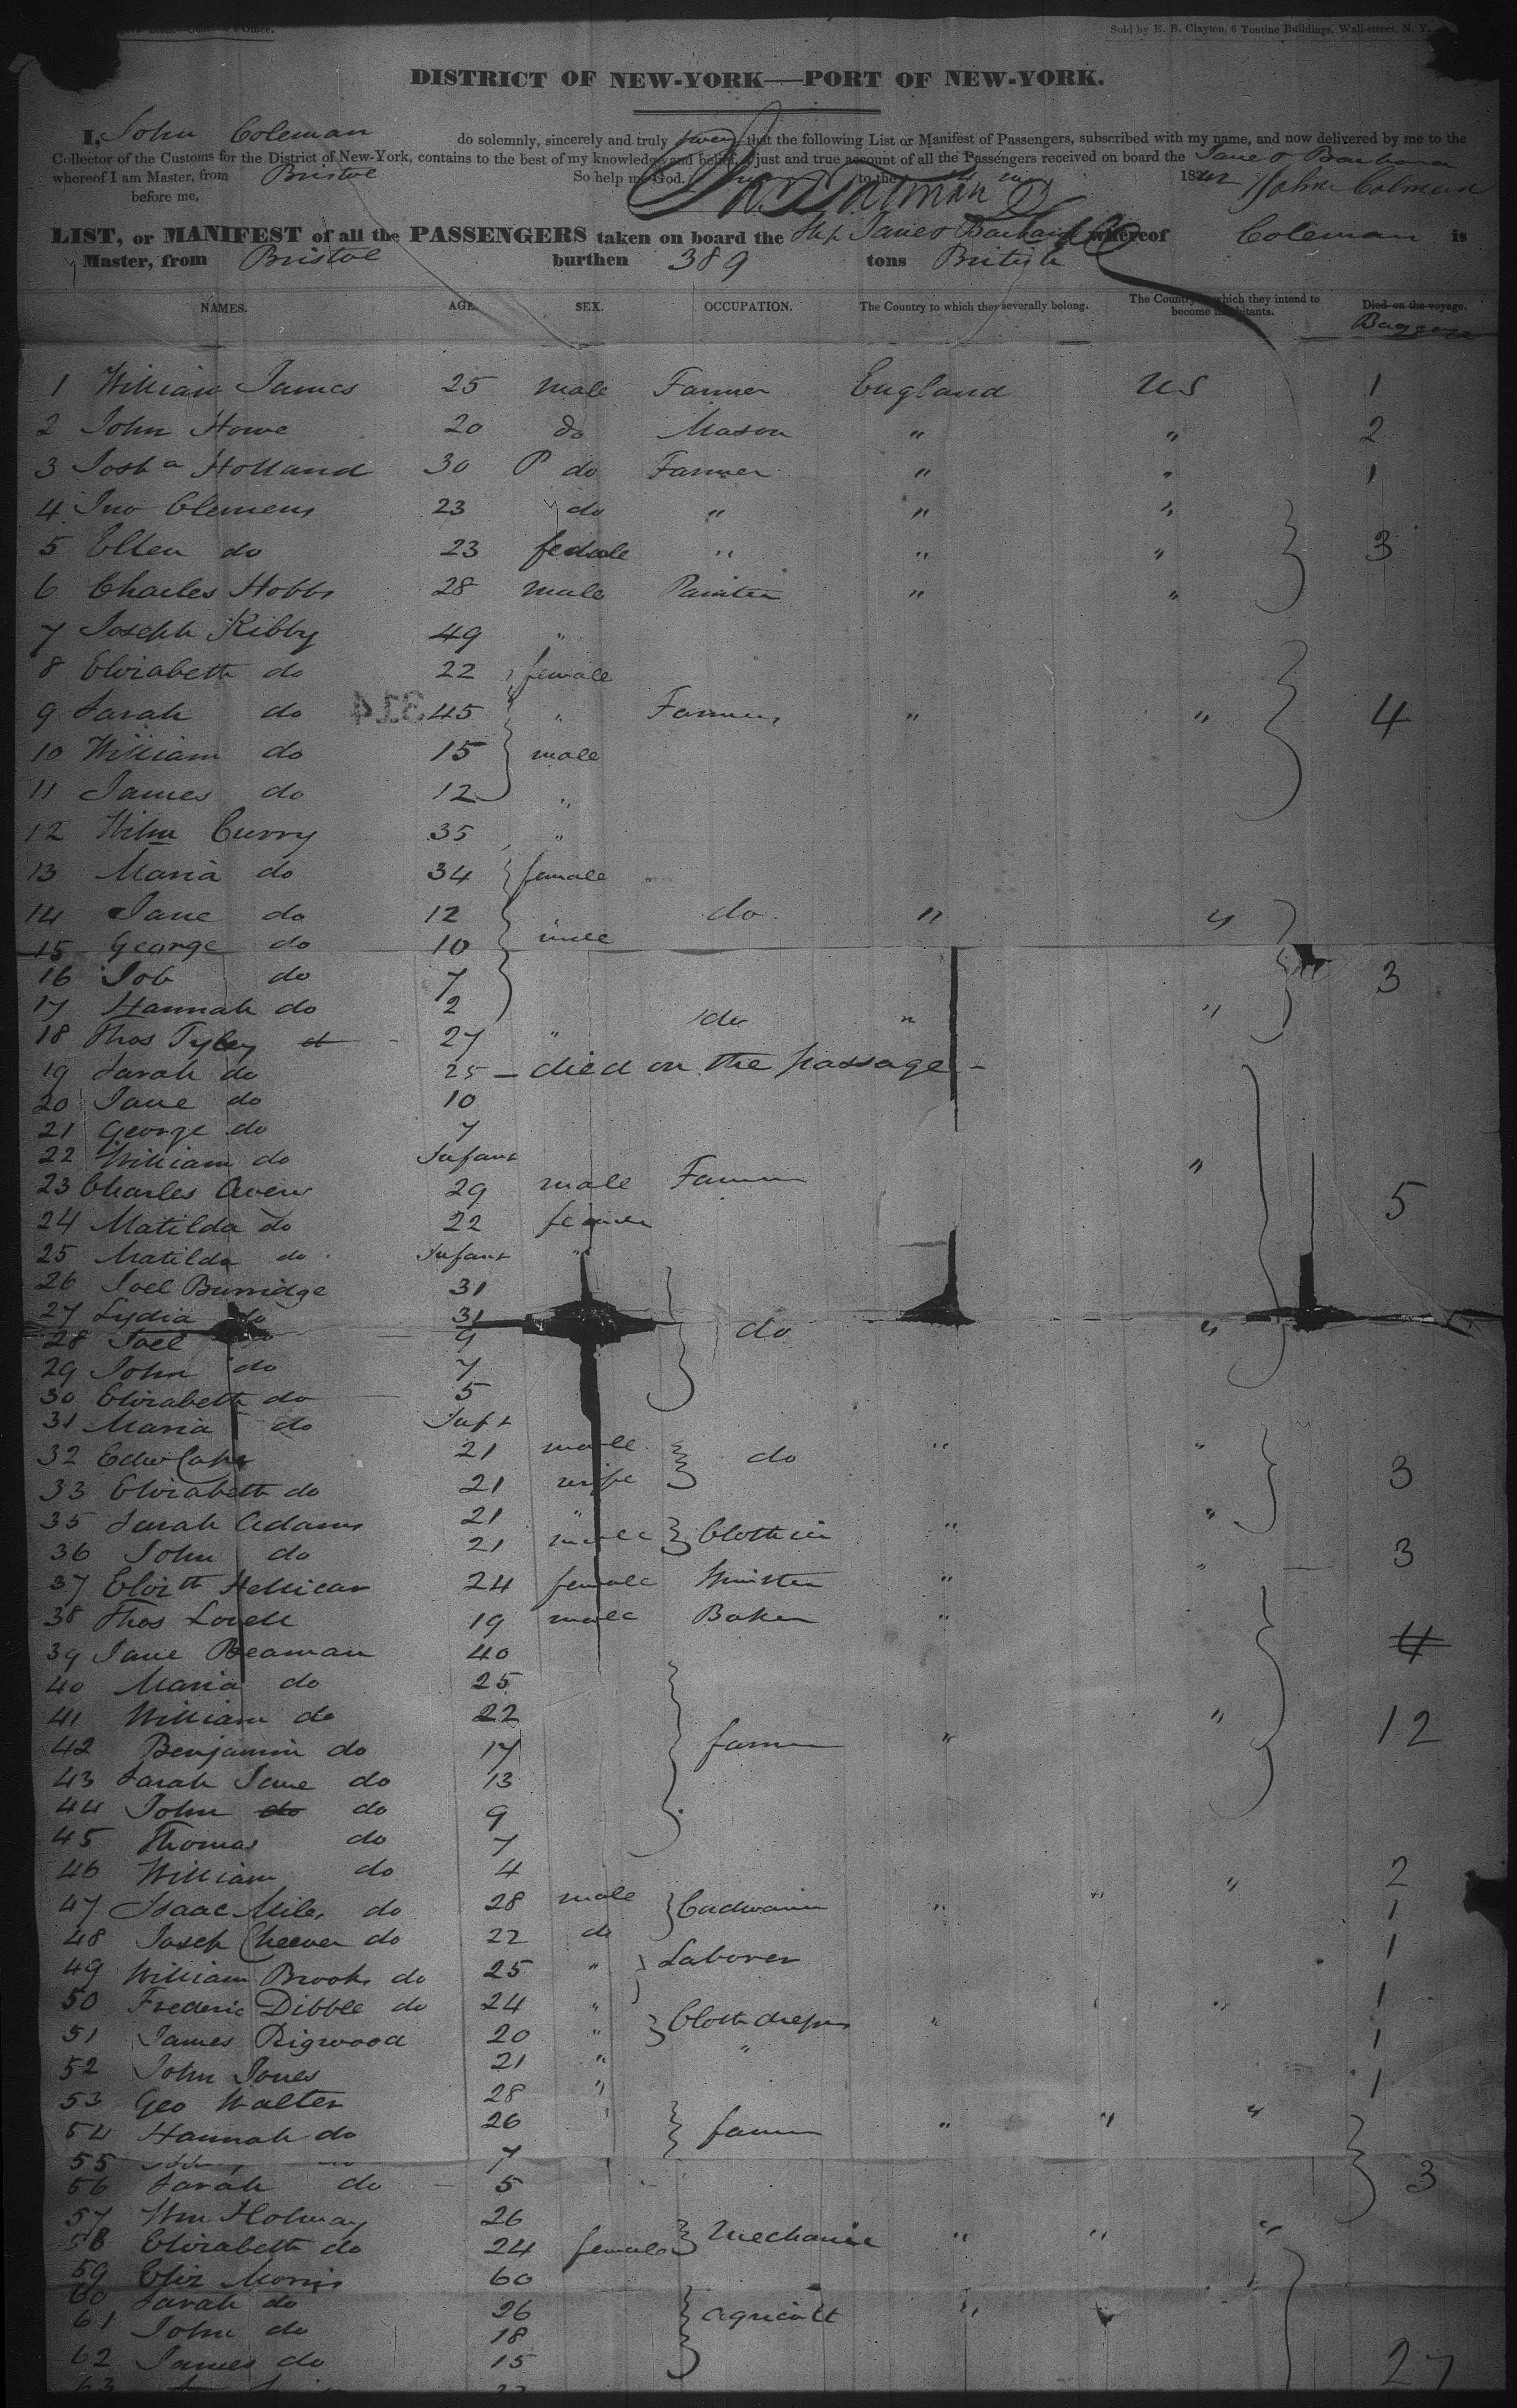 Sold by E. B. Clayton, 6 Tontine Buildings, Wall-street, N. Y.
DISTRICT OF NEW-YORK—PORT OF NEW-YORK.
I, John Coleman do solemnly, sincerely and truly swear that the following List or Manifest of Passengers, subscribed with my name, and now delivered by me to the
Collector of the Customs for the District of New-York, contains to the best of my knowledge and belief, a just and true account of all the Passengers received on board the Jane & Barbara
whereof I am Master, from Bristol So help me God. to the 18 42 John Colman
before me,
LIST, or MANIFEST of all the PASSENGERS taken on board the Ship Jane & Barbara whereof Coleman is
Master, from Bristol burthen 389 tons British
NAMES. AGE SEX. OCCUPATION. The Country to which they severally belong. The Country to which they intend to become inhabitants. Died on the voyage.
Baggage
1 William James 25 male Farmer England US 1
2 John Howe 20 do Mason " " 2
3 Josha Holland 30 P do Farmer " " 1
4 Jno Clemens 23 do " " "
5 Ellen do 23 female " " " 3
6 Charles Hobbs 28 male Painter " "
7 Joseph Kibby 49 "
8 Elizabeth do 22 female
9 Sarah do 45 " Farmers " " 4
314
10 William do 15 male
11 James do 12 "
12 Wilm Curry 35 "
13 Maria do 34 female
14 Jane do 12 do " "
15 George do 10 male
16 Job do 7 3
17 Hannah do 2 "
18 Thos Tyley 27 " do "
19 Sarah do 25 – died on the passage –
20 Jane do 10
21 George do 7
22 William do Infant "
23 Charles Avens 29 male Farmer 5
24 Matilda do 22 female
25 Matilda do Infant "
26 Joel Burridge 31
27 Lydia do 31 do "
28 Joel do 9
29 John do 7
30 Elizabeth do 5
31 Maria do Inft
32 Edw 21 male do " "
33 Elizabeth do 21 wife 3
35 Sarah Adams 21 " "
36 John do 21 male Clothier " 3
37 Elizth Hellicar 24 female " "
38 Thos Lovell 19 male Baker "
39 Jane Beaman 40 4
40 Maria do 25
41 William do 22 " 12
42 Benjamin do 17 farmer "
43 Sarah Jane do 13
44 John do do 9
45 Thomas do 7
46 William do 4 2
47 Isaac Miles do 28 male Cordwainer " " " 1
48 Joseph Cheever do 22 do 1
49 William Brooks do 25 " Laborer
50 Frederic Dibble do 24 " " 1
51 James Rigwood 20 " Cloth dresser " 1
52 John Jones 21 " " 1
53 Geo Walter 28 "
54 Hannah do 26 farmer " " "
55 7
56 Sarah do 5 3
57 Wm Holway 26
58 Elizabeth do 24 female Mechanic " " "
59 Eliz Morris 60
60 Sarah do 26 agricult "
61 John do 18
62 James do 15 27
63